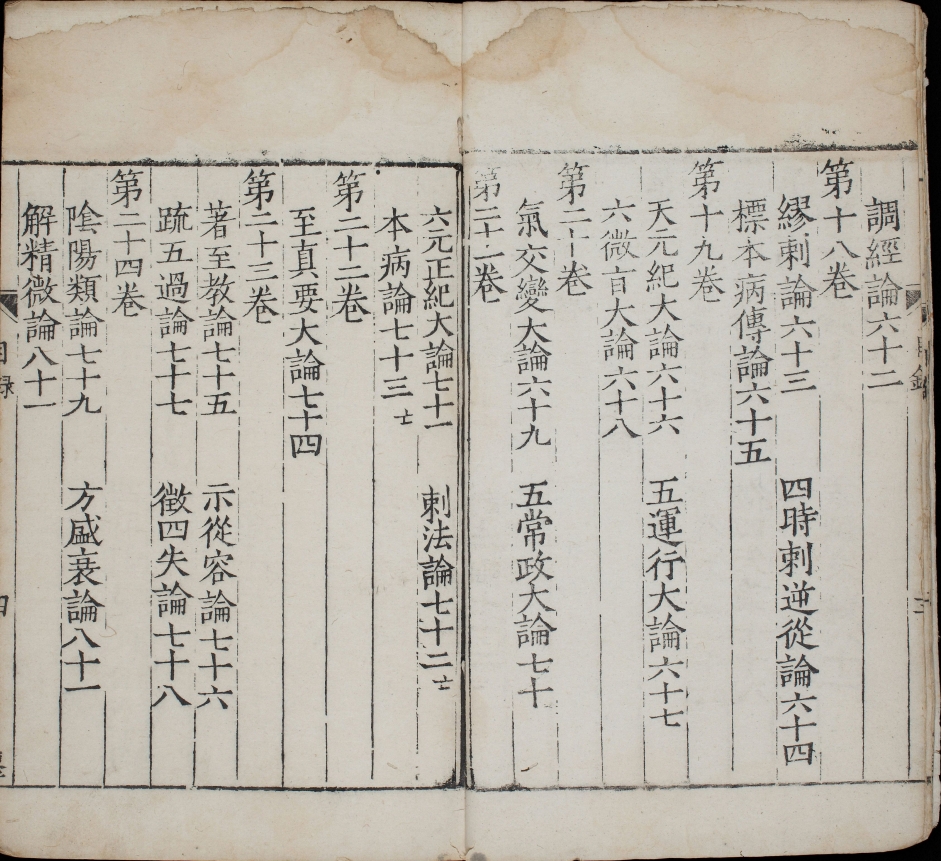 調經論六十二
第十八卷
繆刺論六十三 四時刺逆從論六十四
標本病傳論六十五
第十九卷
天元紀大論六十六 五運行大論六十七
六微旨大論六十八
第二十卷
氣交變大論六十九 五常政大論七十
第二十一卷
六元正紀大論七十一 刺法論七十二亡
本病論七十三亡
第二十二卷
至真要大論七十四
第二十三卷
著至教論七十五 示從容論七十六
疏五過論七十七 徵四失論七十八
第二十四卷
陰陽類論七十九 方盛衰論八十一
解精微論八十一
目錄 四